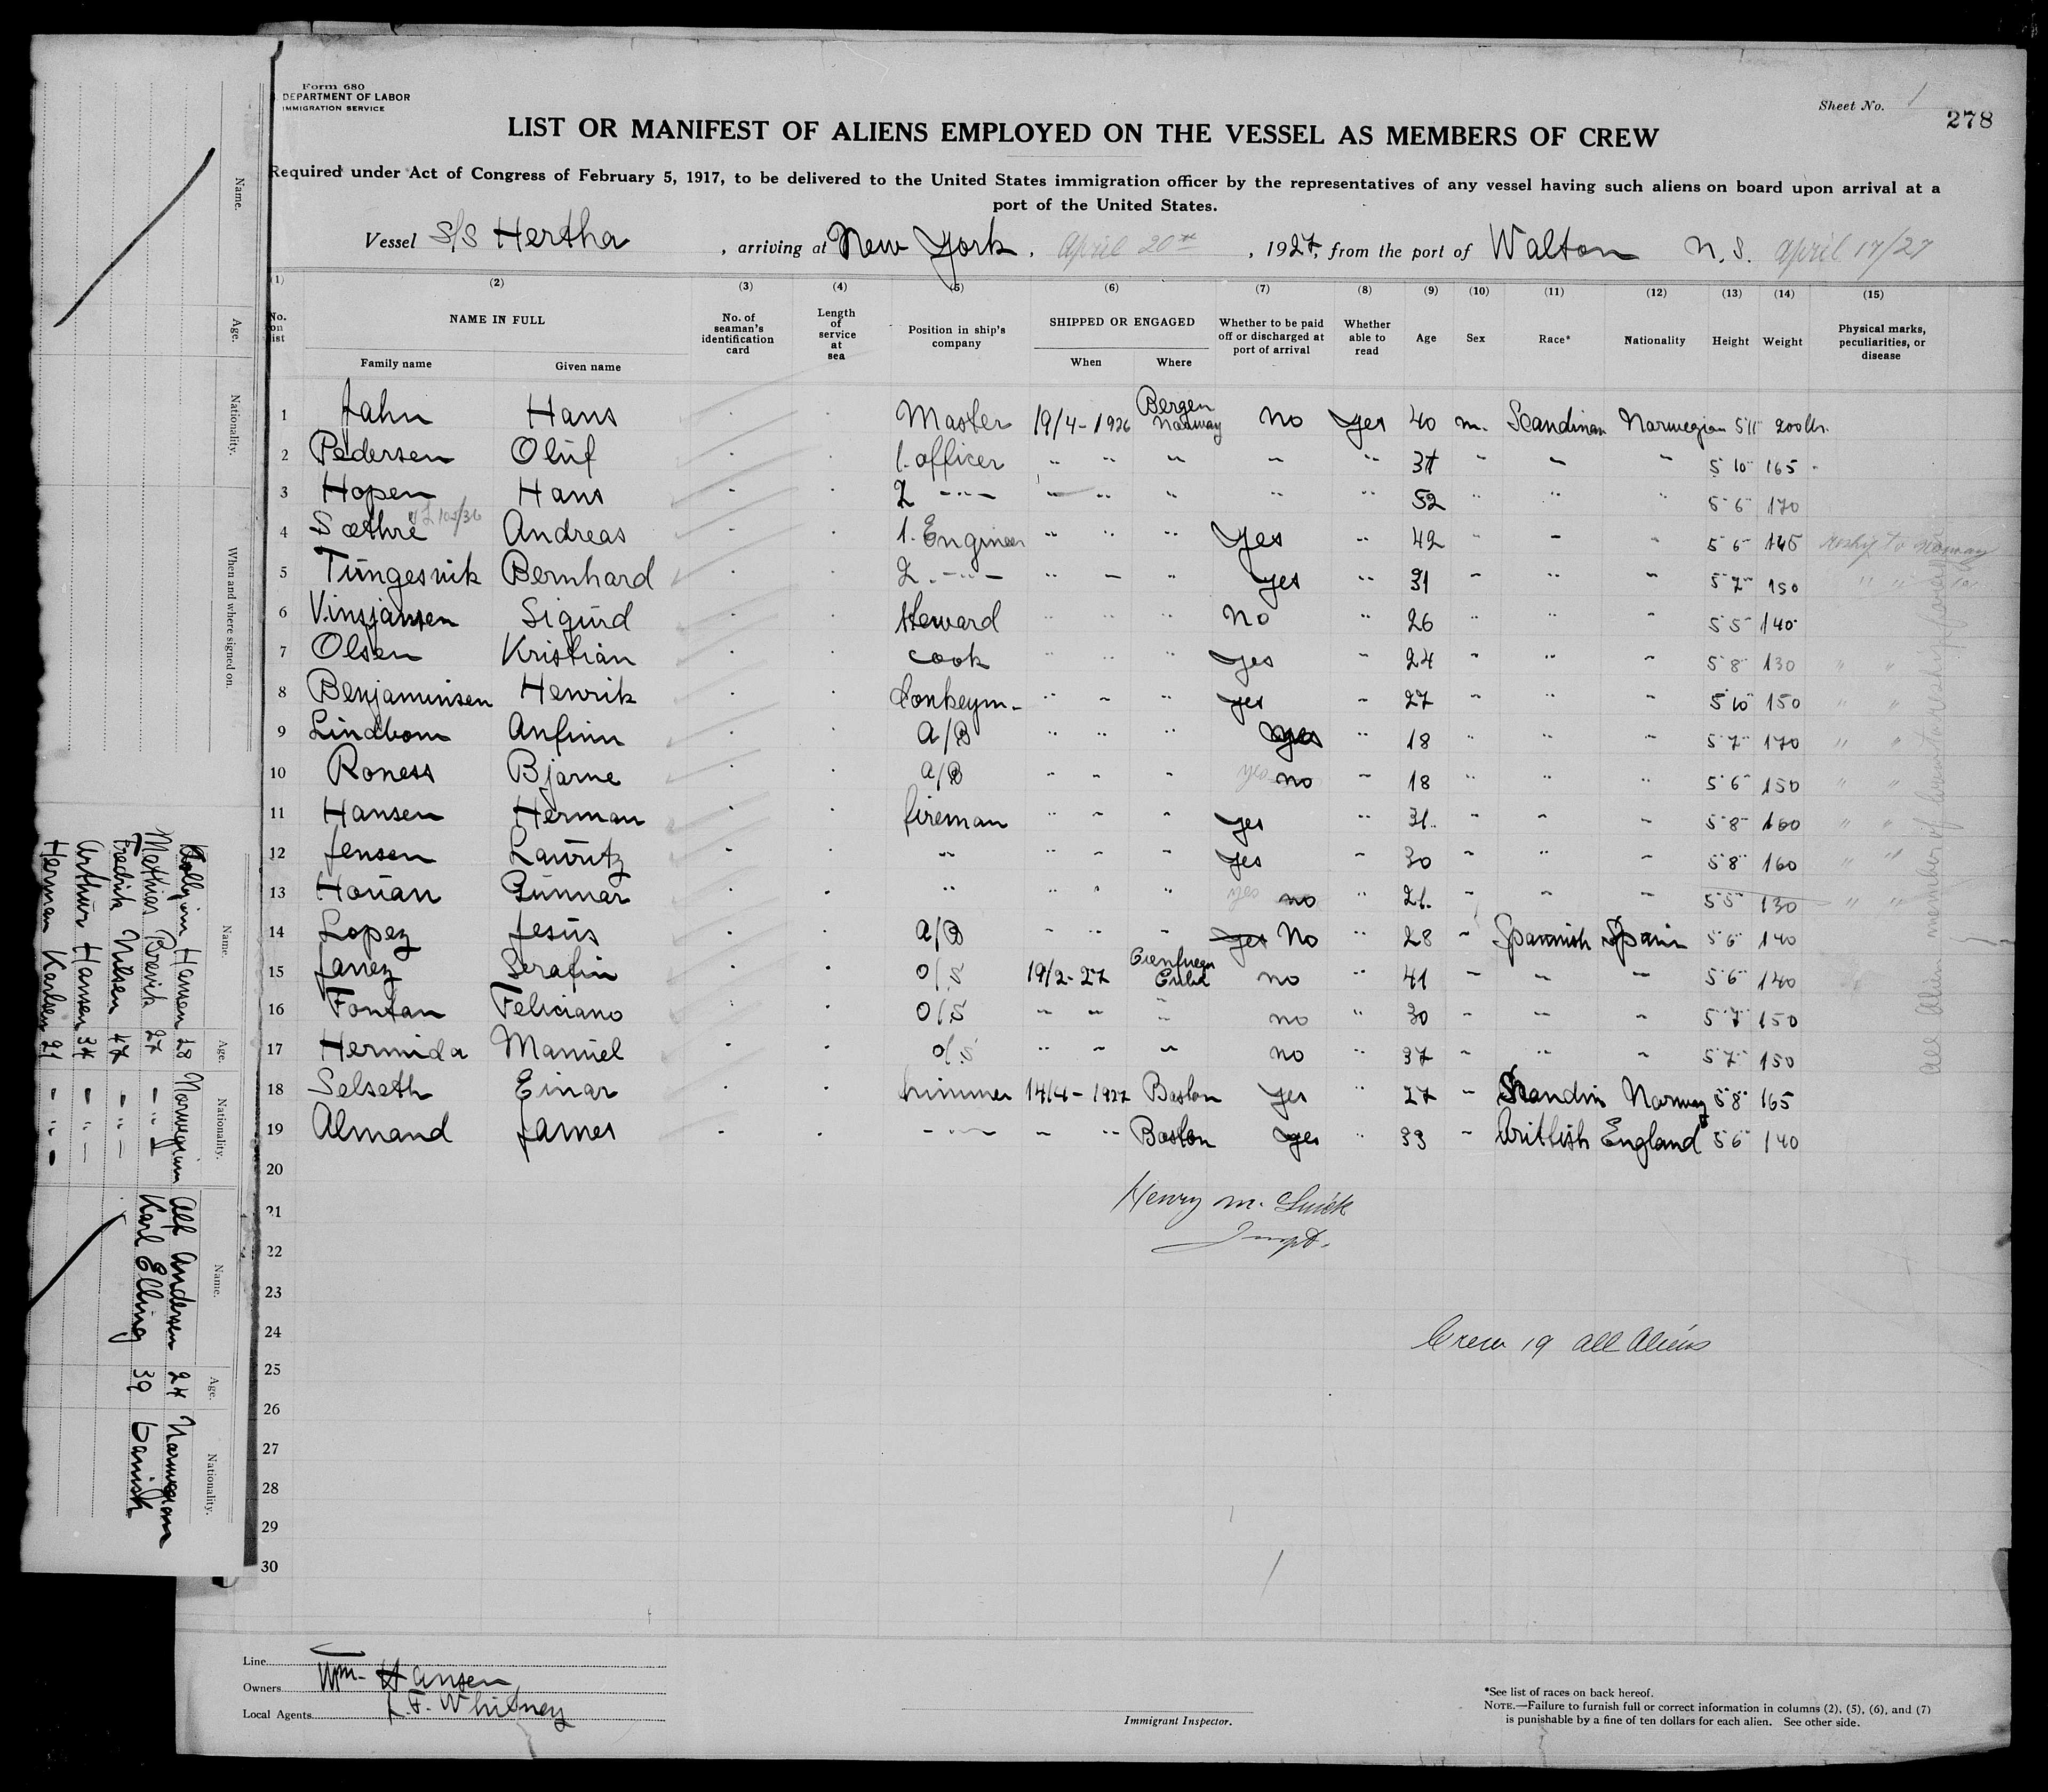 Form 680
DEPARTMENT OF LABOR
IMMIGRATION SERVICE
Sheet No. 1
278
LIST OR MANIFEST OF ALIENS EMPLOYED ON THE VESSEL AS MEMBERS OF CREW
Required under Act of Congress of February 5, 1917, to be delivered to the United States immigration officer by the representatives of any vessel having such aliens on board upon arrival at a
port of the United States.
Vessel S/S Hertha, arriving at New York, April 20th, 1927, from the port of Walton N.S. April 17/27
(1) (2) (3) (4) (5) (6) (7) (8) (9) (10) (11) (12) (13) (14) (15)
No. on list NAME IN FULL Family name Given name No. of seaman's identification card Length of service at sea Position in ship's company SHIPPED OR ENGAGED When Where Whether to be paid off or discharged at port of arrival Whether able to read Age Sex Race* Nationality Height Weight Physical marks, peculiarities, or disease
1 Jahn Hans Master 19/4-1926 Bergen Norway No Yes 40 m. Scandinav Norwegian 5 11 200 lbs.
2 Pedersen Oluf 1. officer " " " " " 37 " " " 5 10 165
3 Hopen Hans 2 -"- " " " " " 52 " " " 5 6 170
4 Sæthre Andreas 1. Engineer " " " Yes " 42 " " " 5 6 145 Reship to Norway
5 Tungesvik Bernhard 2. -"- " " " yes " 31 " " " 5 7 150 " "
6 Vinsjansen Sigurd Steward " " " No " 26 " " " 5 5 140
7 Olsen Kristian cook " " " yes " 24 " " " 5 8 130 " "
8 Benjaminsen Henrik donkeym. " " " yes " 27 " " " 5 10 150 " "
9 Lindbom Anfinn A/B " " " yes " 18 " " " 5 7 170 " "
10 Roness Bjarne A/B " " " yes no " 18 " " " 5 6 150 " "
11 Hansen Herman fireman " " " yes " 31 " " " 5 8 160 " "
12 Jensen Lauritz " " " " yes " 30 " " " 5 8 160 " "
13 Houan Gunnar " " " " yes no " 26 " " " 5 5 130 " "
14 Lopez Jesus A/B " " " yes No " 28 " Spannish Spain 5 6 140
15 Janez Serafin O/S 19/2-27 Cienfuegos Cuba no " 41 " " " 5 6 140
16 Fontan Feliciano O/S " " " no " 30 " " " 5 7 150
17 Hermida Manuel O/S " " " no " 37 " " " 5 7 150
18 Selseth Einar trimmer 14/4-1927 Boston yes " 27 " Skandin Norway 5 8 165
19 Almand James -"- " " Boston yes " 33 " Brittish England 5 6 140
20
21
22
23
24
25
26
27
28
29
30
Henry M.
Inspt.
Crew 19 all aliens
All alien members of crew to reship foreign
Line
Owners Wm. Hansen
Local Agents L. F. Whitney
Immigrant Inspector.
*See list of races on back hereof.
NOTE.—Failure to furnish full or correct information in columns (2), (5), (6), and (7)
is punishable by a fine of ten dollars for each alien. See other side.
Name. Age. Nationality. When and where signed on.
Name. Age. Nationality.
Hansen 28 Norwegian
Mathias Brevik 27 " "
Fredrik Nilsen 47 " "
Arthur Hansen 34 " "
Herman Karlsen 21 " "
Name. Age. Nationality.
Alf Andersen 24 Norwegian
Karl Elling 39 Danish